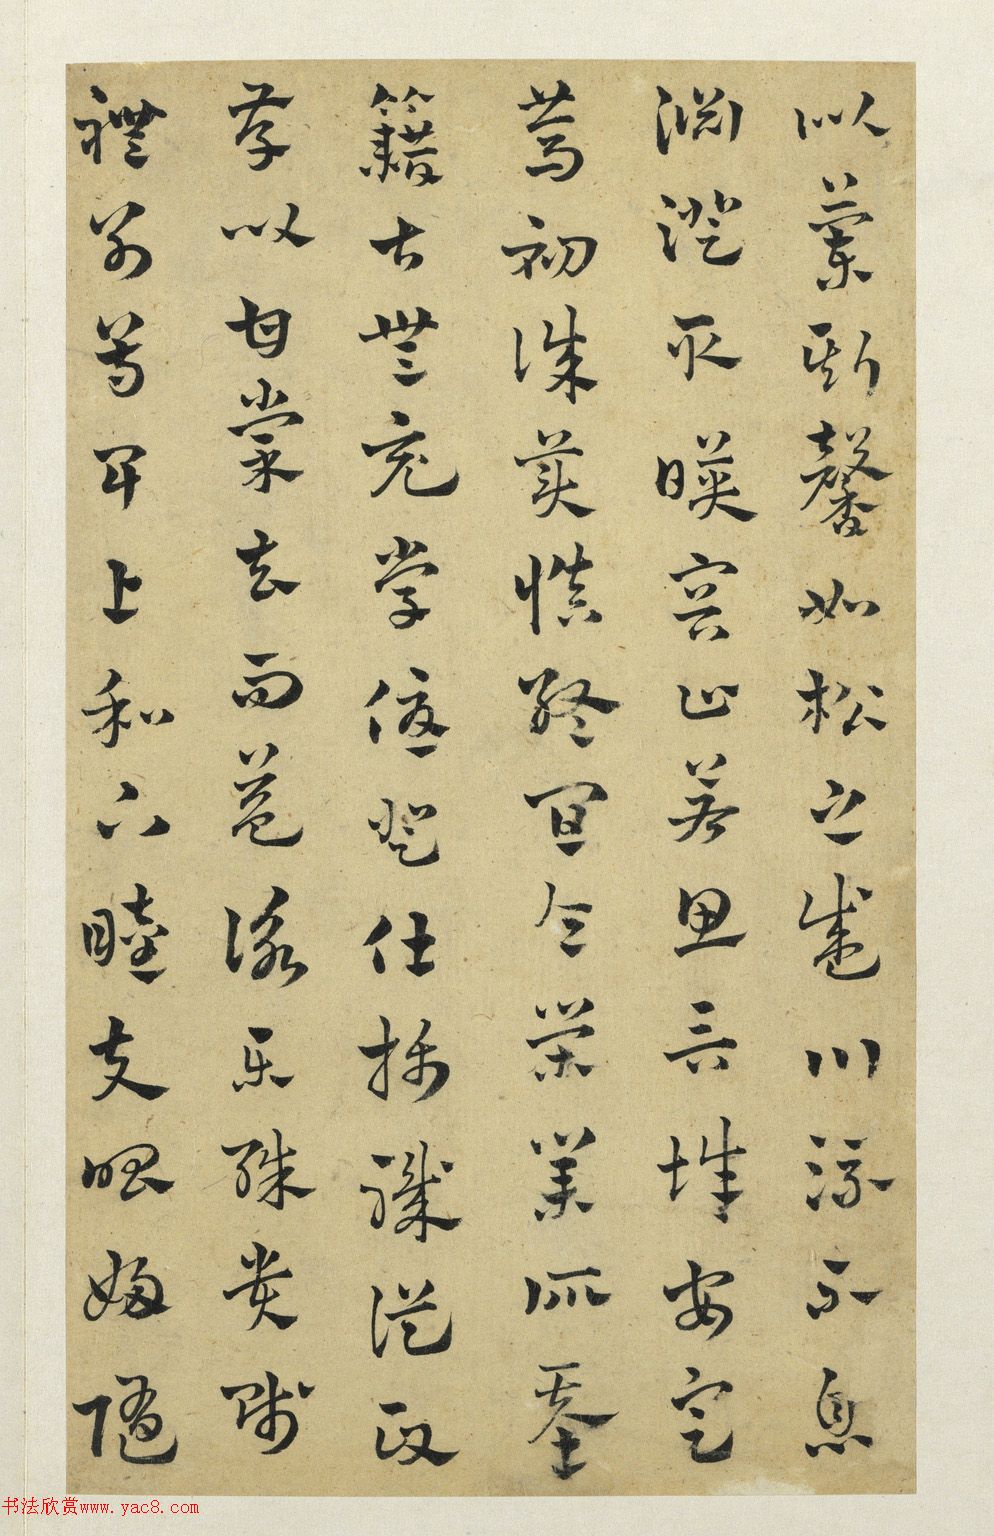 似蘭斯馨如松之盛川流不息
淵澄取映容止若思言辭安定
篤初誠美慎終宜令榮業所基
籍甚無竟學優登仕攝職從政
存以甘棠去而益詠樂殊貴賤
禮別尊卑上和下睦夫唱婦隨
书法欣赏www.yac8.com